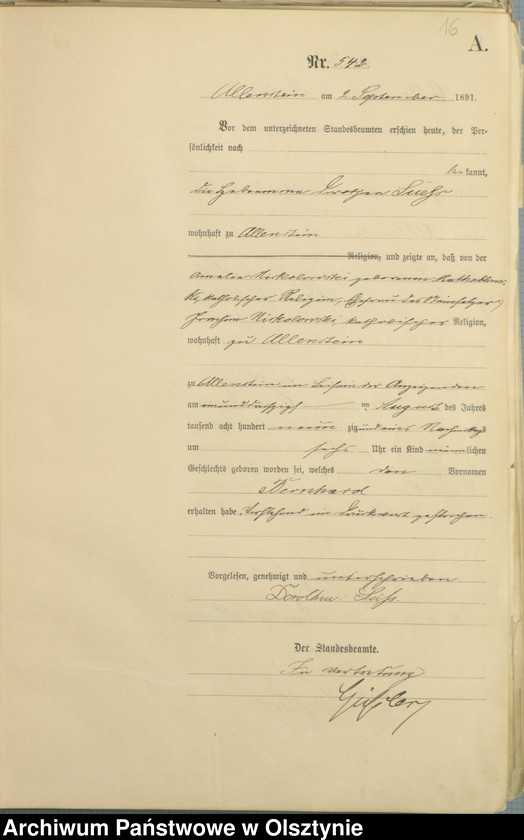 16
A.
Nr. 542
Allenstein am 2 September 1891.
Vor dem unterzeichneten Standesbeamten erschien heute, der Per-
sönlichkeit nach
be kannt,
die Hebamme Dorothea
wohnhaft zu Allenstein
Religion, und zeigte an, daß von der
Amalie Nikolowski geborenen
katholischer Religion, Ehefrau des Steinsetzers
Joachim Nikolowski, katholischer Religion,
wohnhaft zu Allenstein
zu Allenstein im Beisein der Anzeigenden
am einunddreißigsten August des Jahres
tausend acht hundert neun zig und eins Nachmittags
um sechs Uhr ein Kind männlichen
Geschlechts geboren worden sei, welches den Vornamen
Bernhard
erhalten habe. Vorstehend im Druckwort gestrichen.
Vorgelesen, genehmigt und unterschrieben
Dorothea
Der Standesbeamte.
In Vertretung
Archiwum Państwowe w Olsztynie